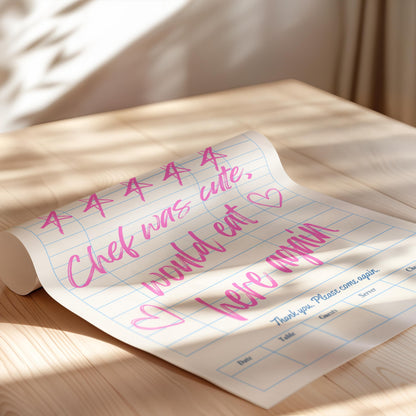 Chef was cute,
would eat
here again
Thank you. Please come again.
Date Table Guests Server